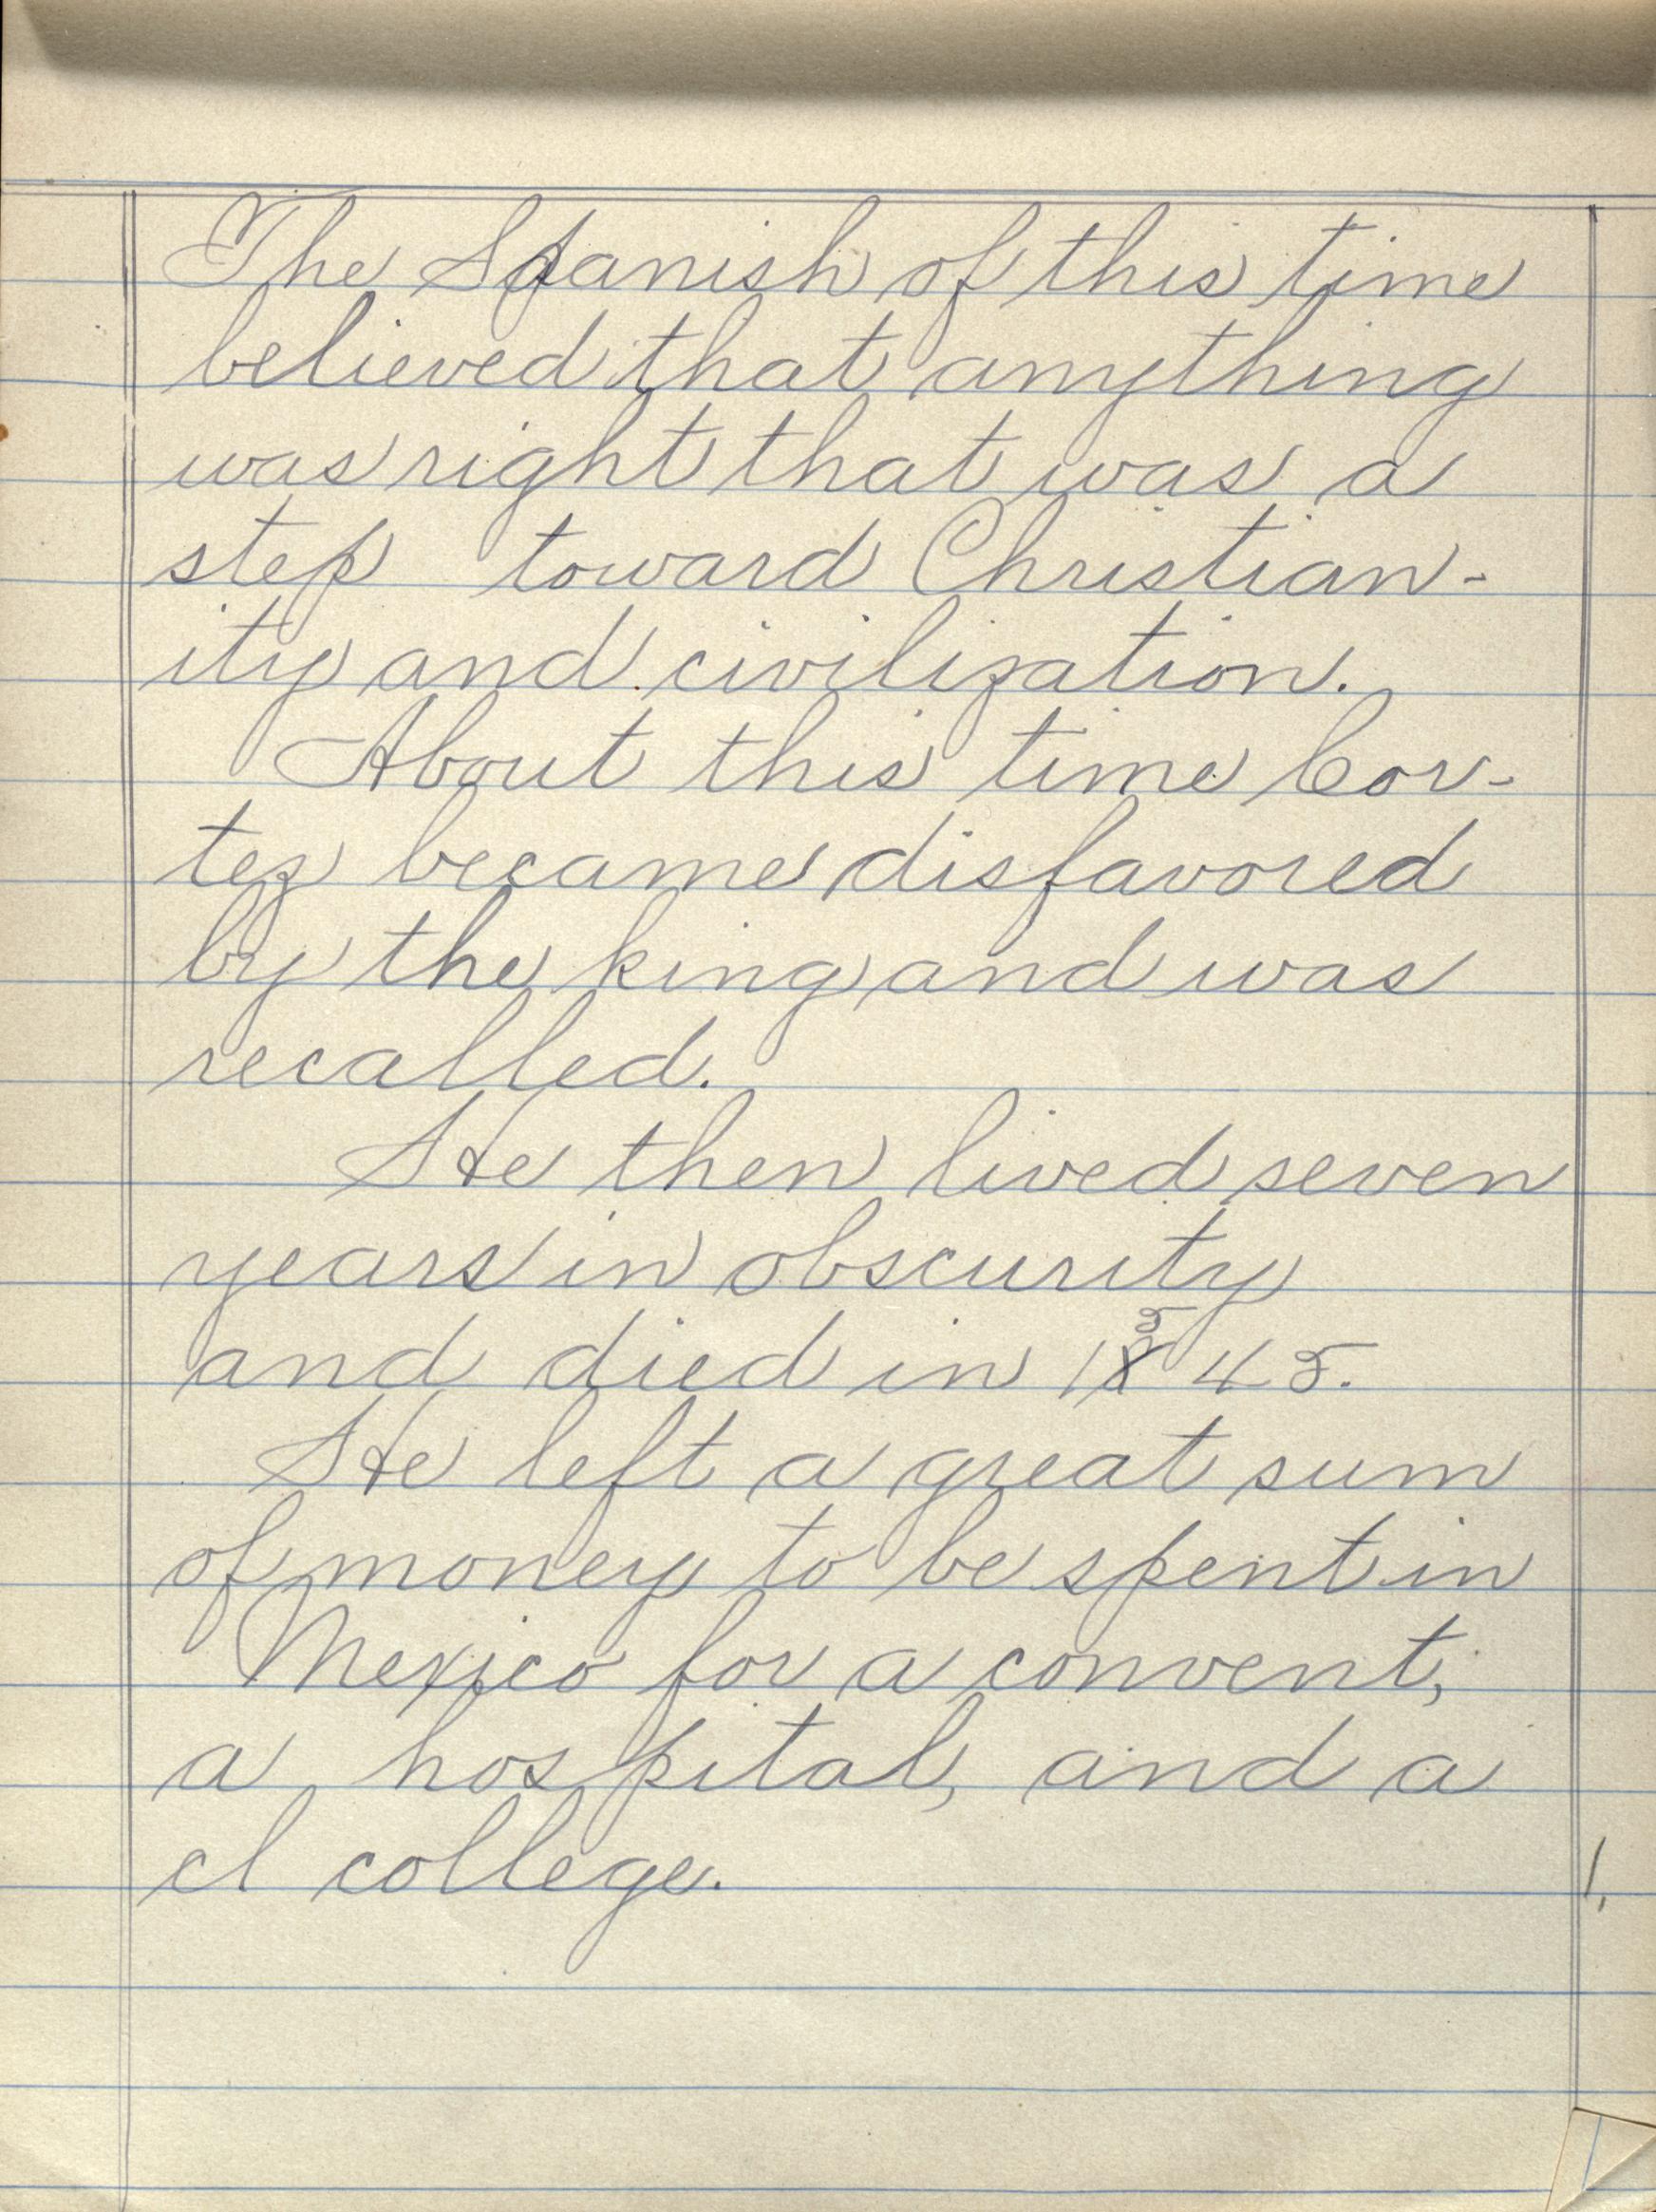 The Spanish of this time
believed that anything
was right that was a
step toward Christian-
ity and civilization.
About this time Cor-
tez became disfavored
by the king and was
recalled.
He then lived seven
years in obscurity
and died in 1545.
He left a great sum
of money to be spent in
Mexico for a convent,
a hospital, and a
cl college.